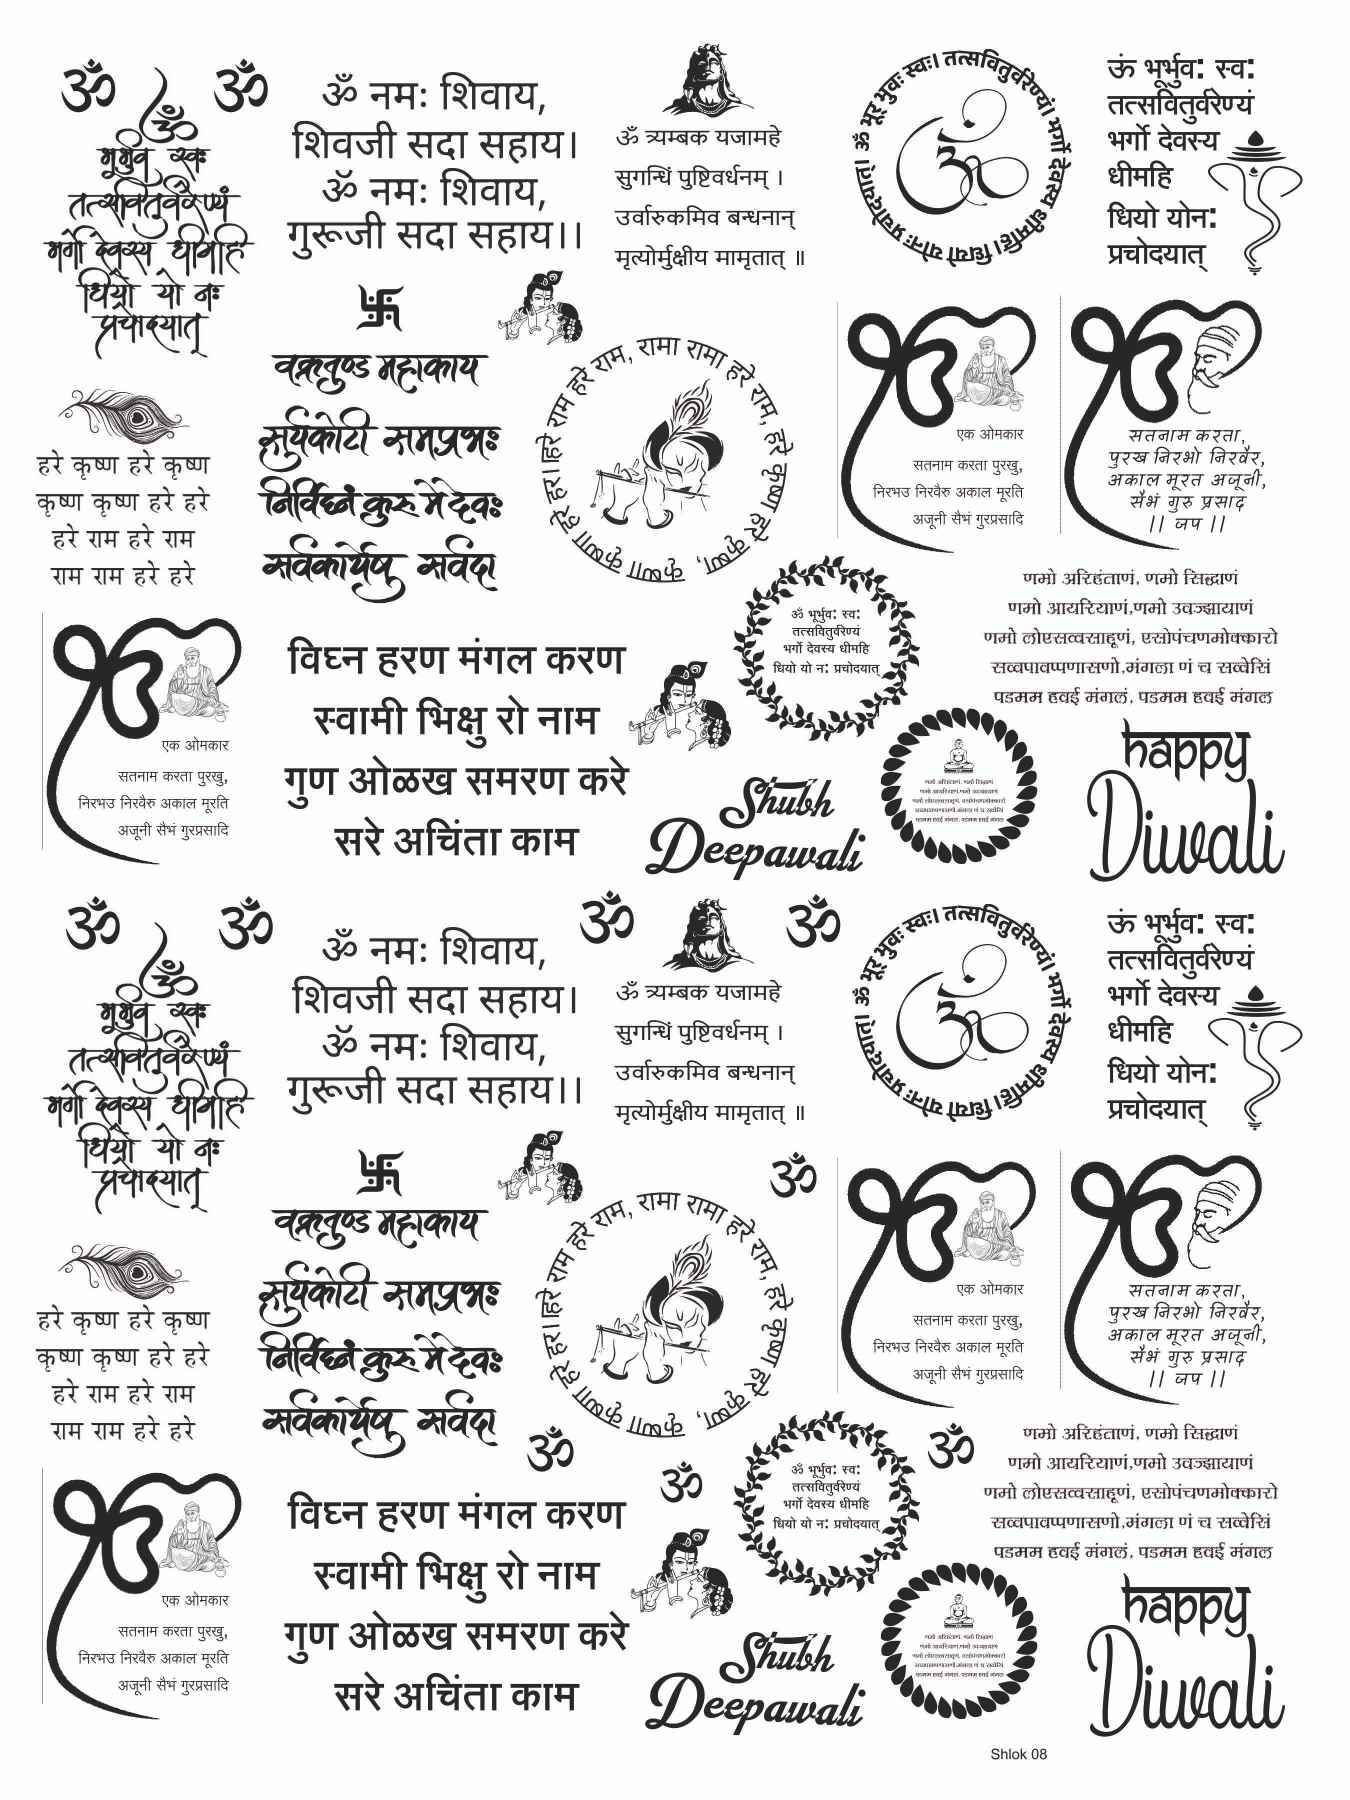 ॐ
ॐ
ॐ
भूर्भुव स्वः
तत्सवितुर्वरेण्यं
भर्गो देवस्य धीमहि
धियो यो नः
प्रचोदयात्
ॐ नमः शिवाय,
शिवजी सदा सहाय।
ॐ नमः शिवाय,
गुरूजी सदा सहाय।।
ॐ त्र्यम्बक यजामहे
सुगन्धिं पुष्टिवर्धनम् ।
उर्वारुकमिव बन्धनान्
मृत्योर्मुक्षीय मामृतात् ॥
ॐ भूर भुवः स्वः। तत्सवितुर्वरेण्यं। भर्गो देवस्य धीमहि। धियो योनः प्रचोदयात्।
ॐ
ऊं भूर्भुव: स्व:
तत्सवितुर्वरेण्यं
भर्गो देवस्य
धीमहि
धियो योन:
प्रचोदयात्
卐
वक्रतुण्ड महाकाय
सुर्यकोटी समप्रभः
निर्विघ्नं कुरु मे देवः
सर्वकार्येषु सर्वदा
हरे राम हरे राम, रामा रामा हरे राम, हरे कृष्णा हरे कृष्ण, कृष्णा कृष्णा हरे हरे।
एक ओमकार
सतनाम करता पुरखु,
निरभउ निरवैरु अकाल मूरति
अजूनी सैभं गुरप्रसादि
सतनाम करता,
पुरख निरभो निरवैर,
अकाल मूरत अजूनी,
सैभं गुरु प्रसाद
।। जप ।।
हरे कृष्ण हरे कृष्ण
कृष्ण कृष्ण हरे हरे
हरे राम हरे राम
राम राम हरे हरे
ॐ भूर्भुव: स्व:
तत्सवितुर्वरेण्यं
भर्गो देवस्य धीमहि
धियो यो न: प्रचोदयात्
णमो अरिहंताणं, णमो सिद्धाणं
णमो आयरियाणं,णमो उवज्झायाणं
णमो लोएसव्वसाहूणं, एसोपंचणमोक्कारो
सव्वपावप्पणासणो,मंगला णं च सव्वेसिं
पडमम हवई मंगलं, पडमम हवई मंगल
एक ओमकार
सतनाम करता पुरखु,
निरभउ निरवैरु अकाल मूरति
अजूनी सैभं गुरप्रसादि
विघ्न हरण मंगल करण
स्वामी भिक्षु रो नाम
गुण ओळख समरण करे
सरे अचिंता काम
Shubh
Deepawali
णमो अरिहंताणं, णमो सिद्धाणं
णमो आयरियाणं,णमो उवज्झायाणं
णमो लोएसव्वसाहूणं, एसोपंचणमोक्कारो
सव्वपावप्पणासणो,मंगला णं च सव्वेसिं
पडमम हवई मंगलं, पडमम हवई मंगल
happy
Diwali
ॐ
ॐ
ॐ
भूर्भुव स्वः
तत्सवितुर्वरेण्यं
भर्गो देवस्य धीमहि
धियो यो नः
प्रचोदयात्
ॐ नमः शिवाय,
शिवजी सदा सहाय।
ॐ नमः शिवाय,
गुरूजी सदा सहाय।।
ॐ
ॐ
ॐ त्र्यम्बक यजामहे
सुगन्धिं पुष्टिवर्धनम् ।
उर्वारुकमिव बन्धनान्
मृत्योर्मुक्षीय मामृतात् ॥
ॐ भूर भुवः स्वः। तत्सवितुर्वरेण्यं। भर्गो देवस्य धीमहि। धियो योनः प्रचोदयात्।
ॐ
ऊं भूर्भुव: स्व:
तत्सवितुर्वरेण्यं
भर्गो देवस्य
धीमहि
धियो योन:
प्रचोदयात्
卐
वक्रतुण्ड महाकाय
सुर्यकोटी समप्रभः
निर्विघ्नं कुरु मे देवः
सर्वकार्येषु सर्वदा
ॐ
हरे राम हरे राम, रामा रामा हरे राम, हरे कृष्णा हरे कृष्ण, कृष्णा कृष्णा हरे हरे।
एक ओमकार
सतनाम करता पुरखु,
निरभउ निरवैरु अकाल मूरति
अजूनी सैभं गुरप्रसादि
सतनाम करता,
पुरख निरभो निरवैर,
अकाल मूरत अजूनी,
सैभं गुरु प्रसाद
।। जप ।।
हरे कृष्ण हरे कृष्ण
कृष्ण कृष्ण हरे हरे
हरे राम हरे राम
राम राम हरे हरे
ॐ
ॐ
ॐ
ॐ भूर्भुव: स्व:
तत्सवितुर्वरेण्यं
भर्गो देवस्य धीमहि
धियो यो न: प्रचोदयात्
णमो अरिहंताणं, णमो सिद्धाणं
णमो आयरियाणं,णमो उवज्झायाणं
णमो लोएसव्वसाहूणं, एसोपंचणमोक्कारो
सव्वपावप्पणासणो,मंगला णं च सव्वेसिं
पडमम हवई मंगलं, पडमम हवई मंगल
एक ओमकार
सतनाम करता पुरखु,
निरभउ निरवैरु अकाल मूरति
अजूनी सैभं गुरप्रसादि
विघ्न हरण मंगल करण
स्वामी भिक्षु रो नाम
गुण ओळख समरण करे
सरे अचिंता काम
Shubh
Deepawali
णमो अरिहंताणं, णमो सिद्धाणं
णमो आयरियाणं,णमो उवज्झायाणं
णमो लोएसव्वसाहूणं, एसोपंचणमोक्कारो
सव्वपावप्पणासणो,मंगला णं च सव्वेसिं
पडमम हवई मंगलं, पडमम हवई मंगल
happy
Diwali
Shlok 08